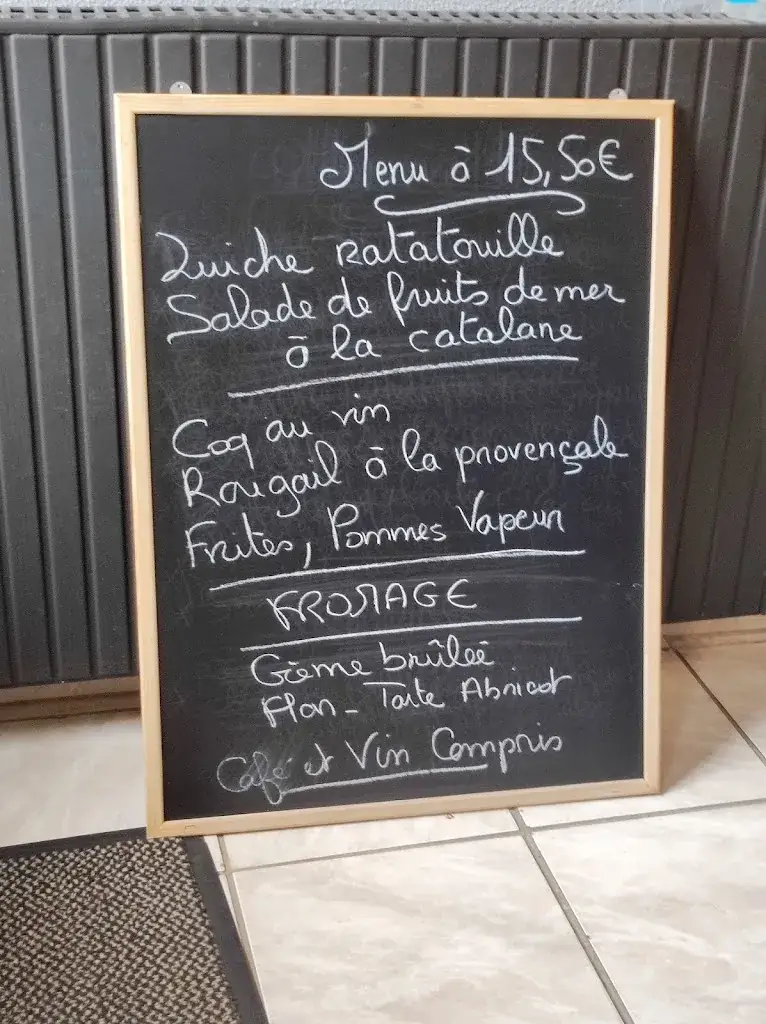 Menu à 15,50€
Quiche Ratatouille
Salade de fruits de mer
à la catalane
Coq au vin
Rougail à la provençale
Frites, Pommes Vapeur
FROMAGE
Crème brûlée
Flan - Tarte Abricot
Café et Vin Compris